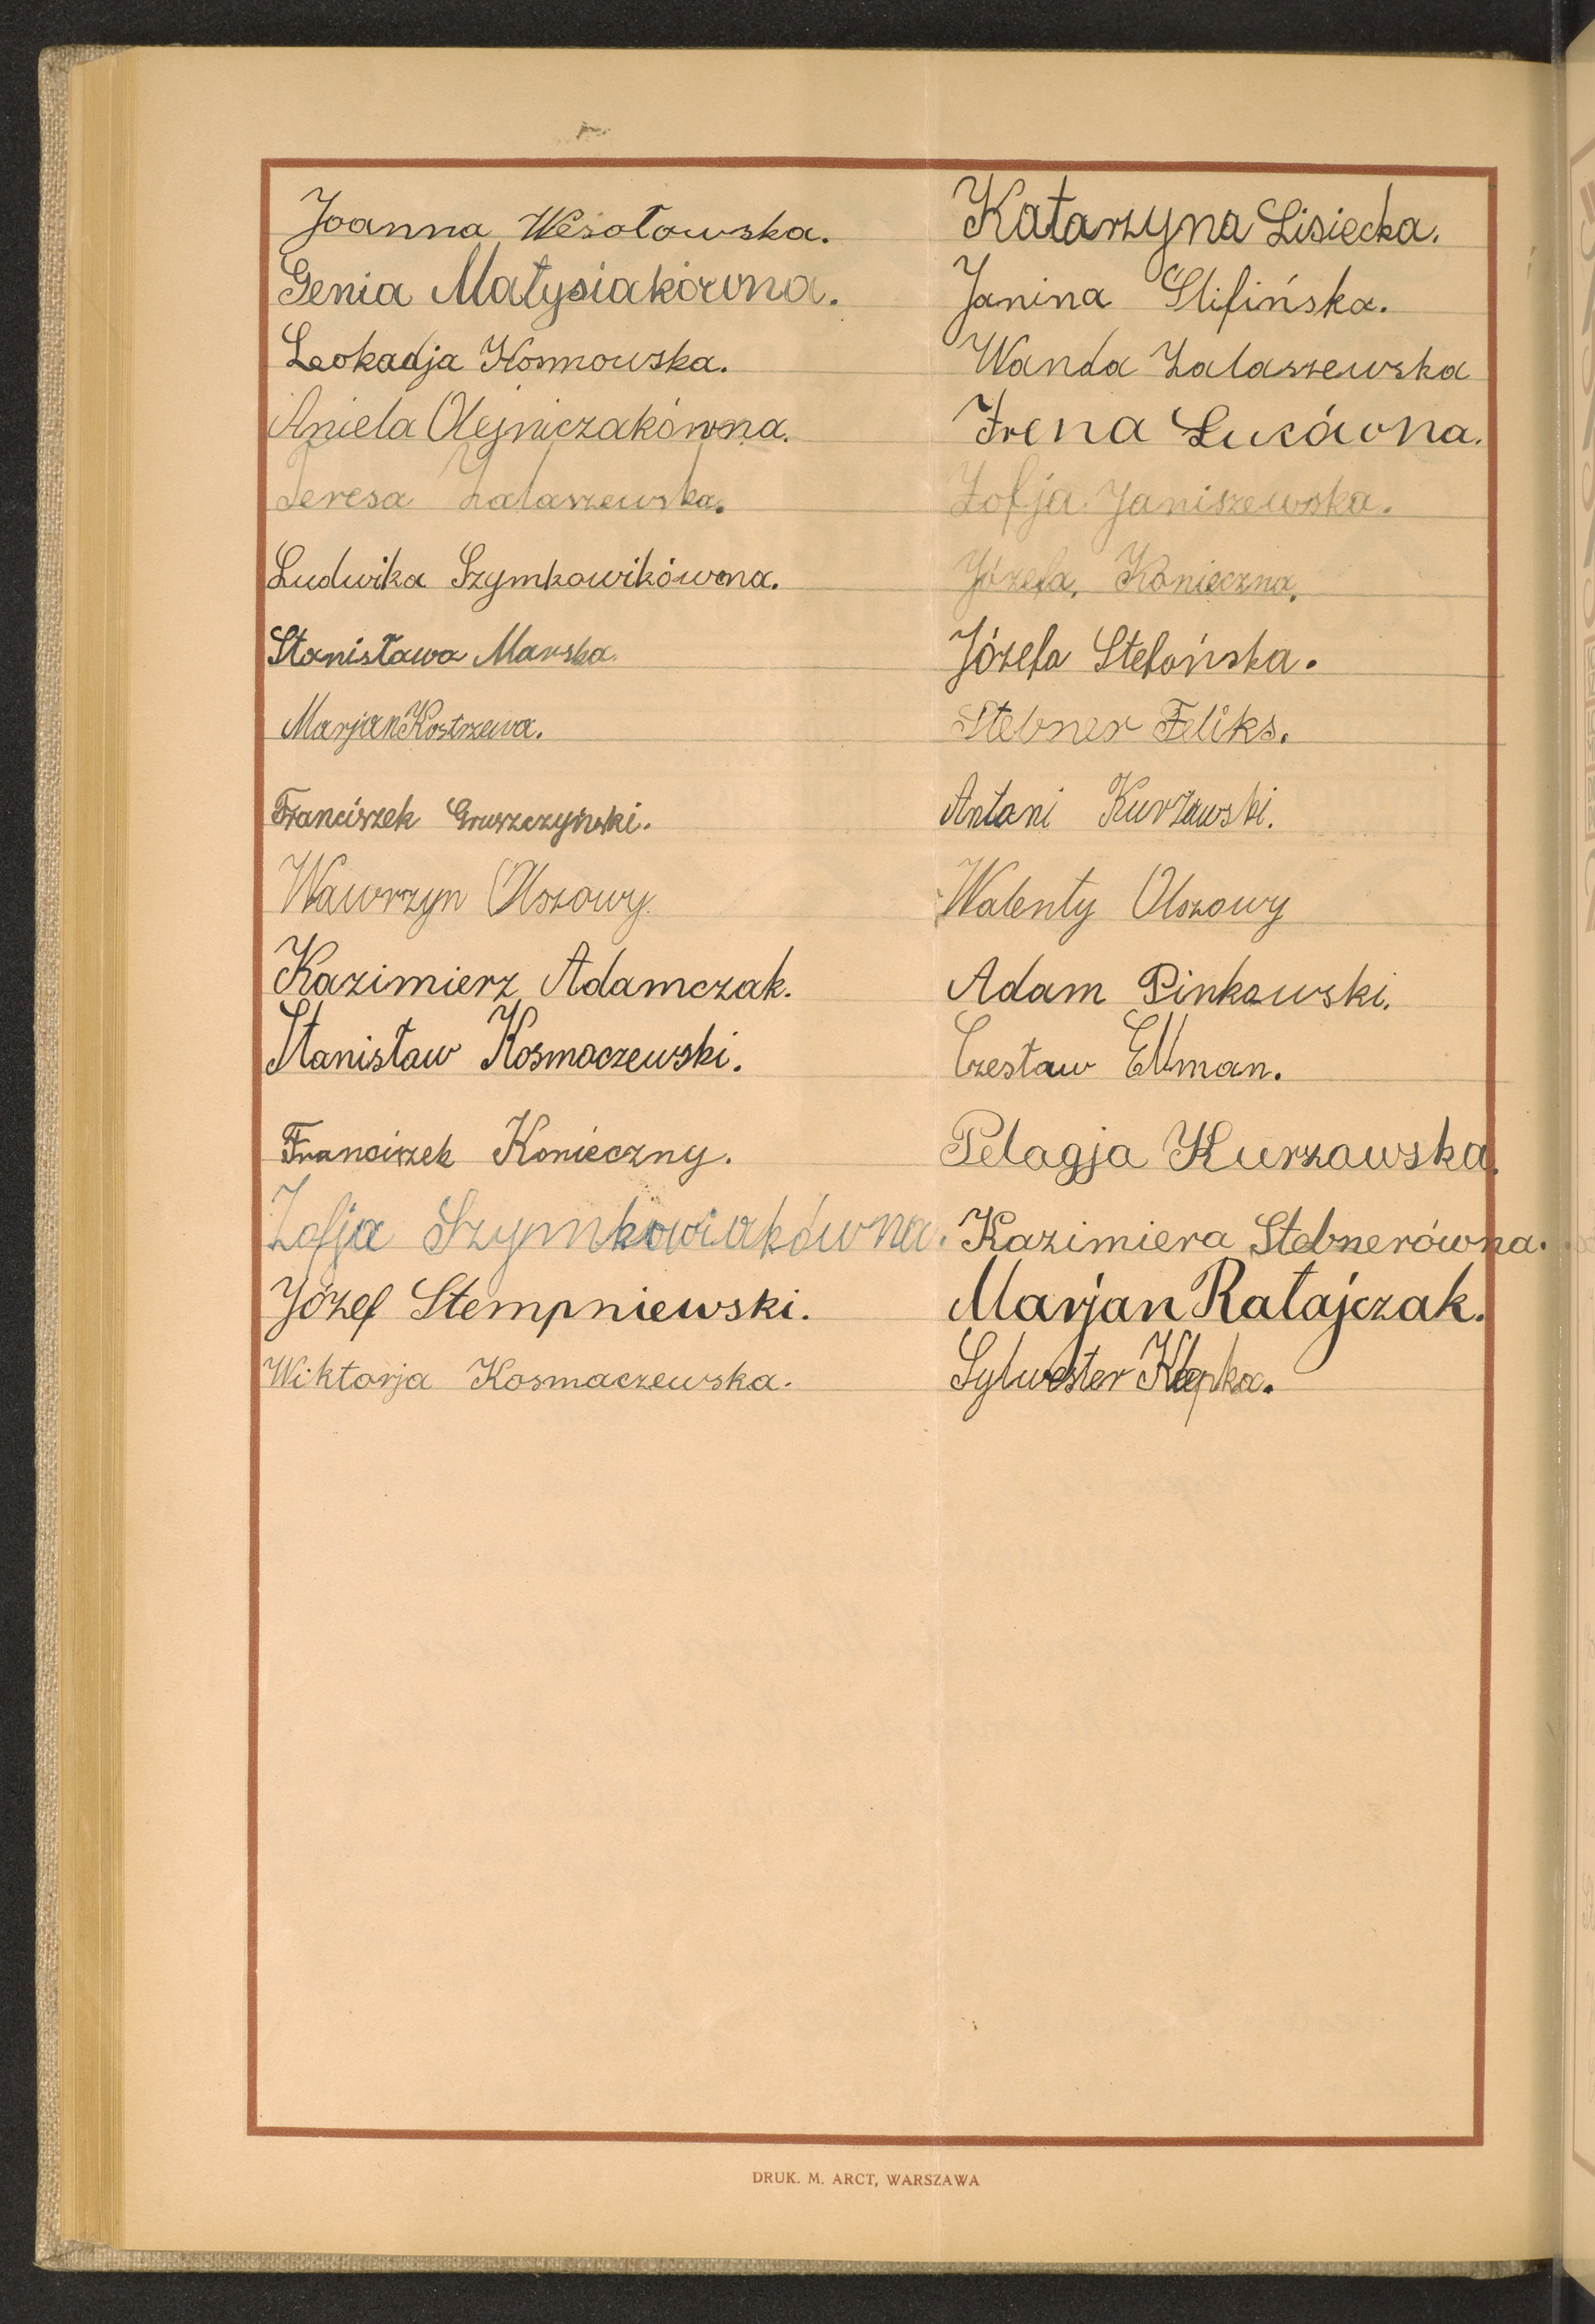 Joanna Wesołowska.
Genia Małysiakówna.
Leokadja Kosmowska.
Aniela Olejniczakówna.
Teresa Zalaszewska.
Ludwika Szymkowikówna.
Stanisława Marska.
Marjan Kostrzewa.
Franciszek Gruszczyński.
Wawrzyn Olszowy.
Kazimierz Adamczak.
Stanisław Kosmaczewski.
Franciszek Konieczny.
Zofja Szymkowiakówna.
Józef Stempniewski.
Wiktorja Kosmaczewska.
Katarzyna Lisiecka.
Janina Slifińska.
Wanda Zalaszewska
Irena Lucówna.
Zofja Janiszewska.
Józefa, Konieczna,
Józefa Stefońska.
Stebner Feliks.
Antoni Kurzawski.
Walenty Olszowy
Adam Pinkowski.
Czesław Ellman.
Pelagja Kurzawska.
Kazimiera Stebnerówna.
Marjan Ratajczak.
Sylwester
DRUK. M. ARCT, WARSZAWA